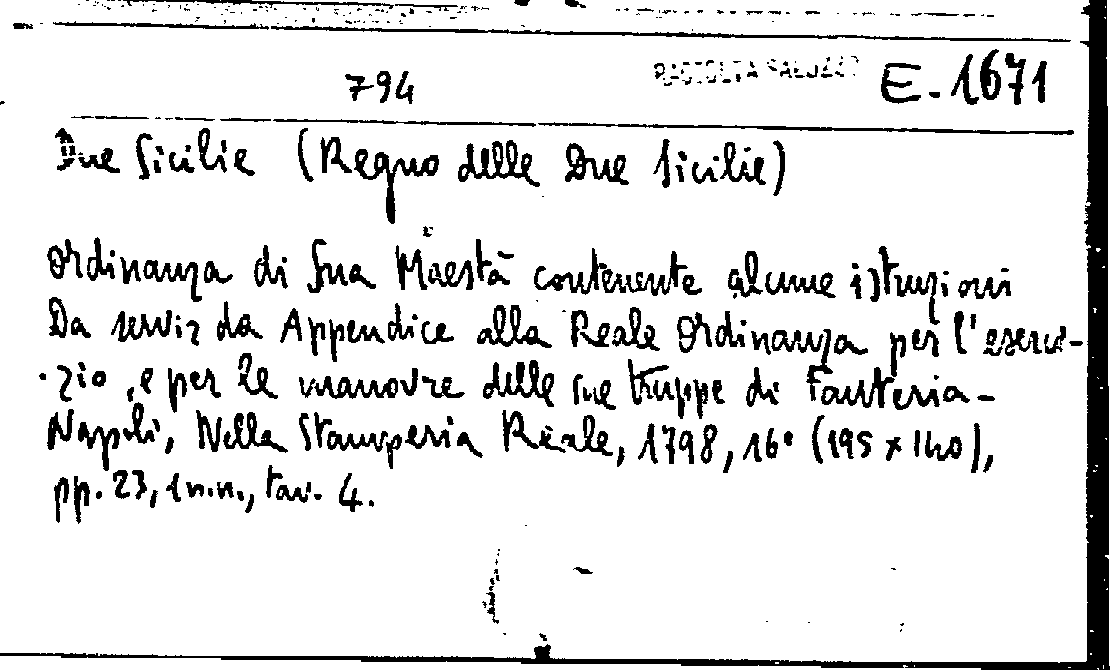 794 RACCOLTA SALUZZO E. 1671
Due Sicilie (Regno delle Due Sicilie)
Ordinanza di Sua Maestà contenente alcune istruzioni
Da servir da Appendice alla Reale Ordinanza per l'eserci-
zio, e per le manovre delle sue truppe di Fanteria-
Napoli, Nella Stamperia Reale, 1798, 16° (195 x 140),
pp. 23, 1 n.n., tav. 4.